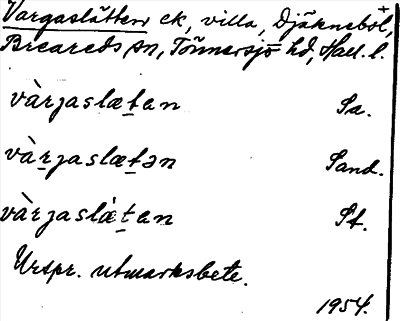 Vargaslätten ek, villa, Djäknebol,+
Breareds sn, Tönnersjö hd, Hall. l.
vàrgaslæt̠an Sa.
vàr̠gaslæt̠ən Sand.
vàrgaslæ̀t̠an St.
Urspr. utmarksbete.
1954.